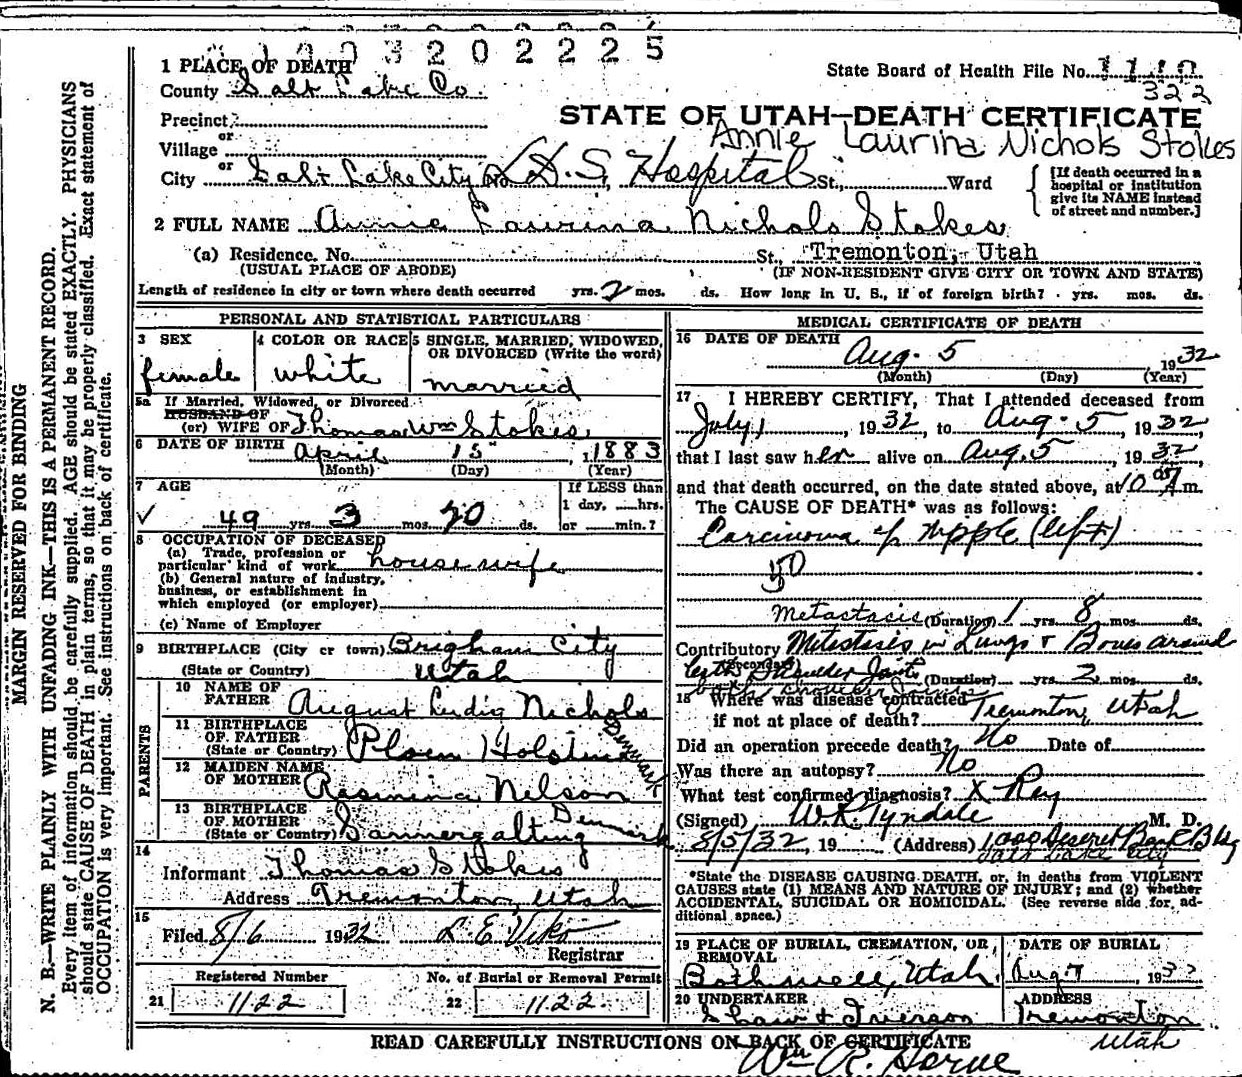 3202225
1 PLACE OF DEATH
State Board of Health File No.
322
County Salt Lake Co.
STATE OF UTAH—DEATH CERTIFICATE
Precinct
or
Annie Laurina Nichols Stokes
Village
or
City Salt Lake City No. L.D.S. Hospital St., Ward
[If death occurred in a hospital or institution give its NAME instead of street and number.]
2 FULL NAME Annie Laurina Nichols Stokes
(a) Residence. No. St., Tremonton, Utah
(USUAL PLACE OF ABODE) (IF NON-RESIDENT GIVE CITY OR TOWN AND STATE)
Length of residence in city or town where death occurred yrs. 2 mos. ds. How long in U. S., if of foreign birth? yrs. mos. ds.
MARGIN RESERVED FOR BINDING
N. B.—WRITE PLAINLY WITH UNFADING INK—THIS IS A PERMANENT RECORD.
Every item of information should be carefully supplied. AGE should be stated EXACTLY. PHYSICIANS
should state CAUSE OF DEATH in plain terms, so that it may be properly classified. Exact statement of
OCCUPATION is very important. See instructions on back of certificate.
PERSONAL AND STATISTICAL PARTICULARS
3 SEX
female
4 COLOR OR RACE
white
5 SINGLE, MARRIED, WIDOWED,
OR DIVORCED (Write the word)
married
5a If Married, Widowed, or Divorced
HUSBAND OF
(or) WIFE OF Thomas Wm Stokes
6 DATE OF BIRTH April 15, 1883
(Month) (Day) (Year)
7 AGE
49 yrs. 3 mos. 20 ds.
If LESS than
1 day, hrs.
or min.?
8 OCCUPATION OF DECEASED
(a) Trade, profession or
particular kind of work housewife
(b) General nature of industry,
business, or establishment in
which employed (or employer)
(c) Name of Employer
9 BIRTHPLACE (City or town) Brigham City
(State or Country) Utah
PARENTS
10 NAME OF
FATHER August Ludig Nichols
11 BIRTHPLACE
OF FATHER
(State or Country) Ploen Holstine Denmark
12 MAIDEN NAME
OF MOTHER Rasmina Nelson
13 BIRTHPLACE
OF MOTHER
(State or Country) Denmark
14
Informant Thomas Stokes
Address Tremonton, Utah
15
Filed 8/6 1932
Registrar
Registered Number
21 1122
No. of Burial or Removal Permit
22 1122
MEDICAL CERTIFICATE OF DEATH
16 DATE OF DEATH
Aug. 5 1932
(Month) (Day) (Year)
17 I HEREBY CERTIFY, That I attended deceased from
July 1, 1932, to Aug. 5, 1932,
that I last saw her alive on Aug. 5, 1932
and that death occurred, on the date stated above, at 10 A m.
The CAUSE OF DEATH* was as follows:
Carcinoma of Nipple (left)
50
Metastacis (Duration) 1 yrs. 8 mos. ds.
Contributory Metastasis in Lungs & Bones around
(Secondary)
both Shoulder Joints (Duration) yrs. 2 mos. ds.
both shoulder joints
18 Where was disease contracted
if not at place of death? Tremonton, Utah
Did an operation precede death? No Date of
Was there an autopsy? No
What test confirmed diagnosis? X Ray
(Signed) W.R. Tyndale M. D.
8/5/32, 19 (Address) 1000 Deseret Bank Bldg
Salt Lake City
*State the DISEASE CAUSING DEATH, or, in deaths from VIOLENT
CAUSES state (1) MEANS AND NATURE OF INJURY; and (2) whether
ACCIDENTAL, SUICIDAL OR HOMICIDAL. (See reverse side for ad-
ditional space.)
19 PLACE OF BURIAL, CREMATION, OR
REMOVAL
Bothwell, Utah
DATE OF BURIAL
Aug 7, 193
20 UNDERTAKER
Shaw &
ADDRESS
Tremonton
Utah
READ CAREFULLY INSTRUCTIONS ON BACK OF CERTIFICATE
Wm R. Horne